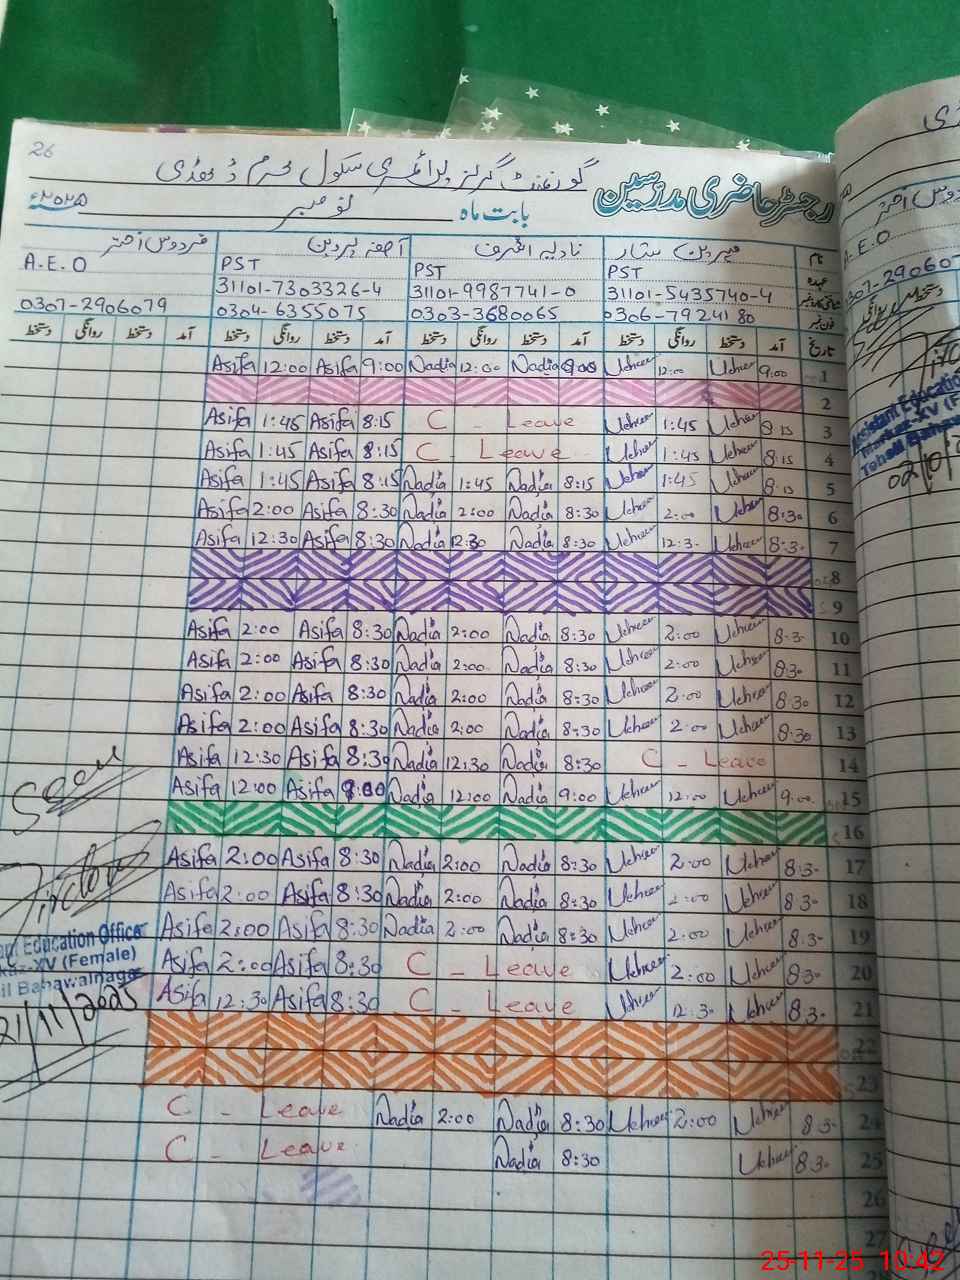 26
گورنمنٹ گرلز پرائمری سکول
رجسٹر حاضری مدرسین
بابت ماہ نومبر ۲۰۲۵ء
نام مہرین ستار نادیہ اشرف آصفہ پروین فردوس اختر
عہدہ PST PST PST A.E.O
شناختی کارڈ نمبر 31101-5435740-4 31101-9987741-0 31101-7303326-4
فون نمبر 0306-7924180 0303-3680065 0304-6355075 0307-2906079
تاریخ آمد دستخط روانگی دستخط آمد دستخط روانگی دستخط آمد دستخط روانگی دستخط آمد دستخط روانگی دستخط
Asifa 12:00 Asifa 9:00 Nadia 12:00 Nadia 9:00 12:00 9:00 1
2
Asifa 1:45 Asifa 8:15 C - Leave 1:45 8:15 3
Asifa 1:45 Asifa 8:15 C - Leave 1:45 8:15 4
Asifa 1:45 Asifa 8:15 Nadia 1:45 Nadia 8:15 1:45 8:15 5
Asifa 2:00 Asifa 8:30 Nadia 2:00 Nadia 8:30 2:00 8:30 6
Asifa 12:30 Asifa 8:30 Nadia 12:30 Nadia 8:30 12:30 8:30 7
8
9
Asifa 2:00 Asifa 8:30 Nadia 2:00 Nadia 8:30 2:00 8:30 10
Asifa 2:00 Asifa 8:30 Nadia 2:00 Nadia 8:30 2:00 8:30 11
Asifa 2:00 Asifa 8:30 Nadia 2:00 Nadia 8:30 2:00 8:30 12
Asifa 2:00 Asifa 8:30 Nadia 2:00 Nadia 8:30 2:00 8:30 13
Asifa 12:30 Asifa 8:30 Nadia 12:30 Nadia 8:30 C - Leave 14
Asifa 12:00 Asifa 9:00 Nadia 12:00 Nadia 9:00 12:00 9:00 15
16
Asifa 2:00 Asifa 8:30 Nadia 2:00 Nadia 8:30 2:00 8:30 17
Asifa 2:00 Asifa 8:30 Nadia 2:00 Nadia 8:30 2:00 8:30 18
Asifa 2:00 Asifa 8:30 Nadia 2:00 Nadia 8:30 2:00 8:30 19
Asifa 2:00 Asifa 8:30 C - Leave 2:00 8:30 20
Asifa 12:30 Asifa 8:30 C - Leave 12:30 8:30 21
22
23
C - Leave Nadia 2:00 Nadia 8:30 2:00 8:30 24
C - Leave Nadia 8:30 8:30 25
26
27
Seen
Education Office
XV (Female)
Bahawalnagar
21/11/2025
A.E.O
Assistant Education
25-11-25 10:42